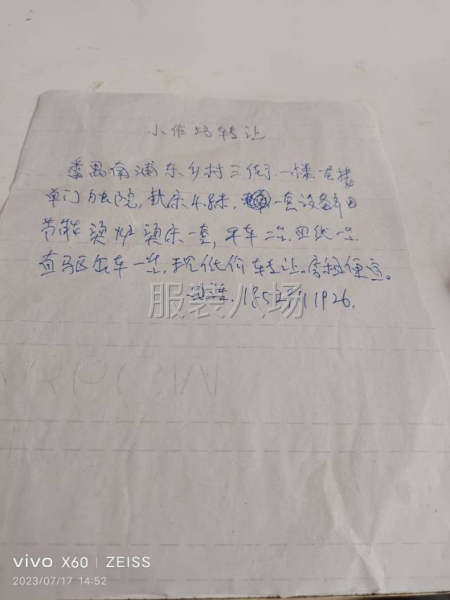 小作坊转让
番禺南浦东乡村三街一楼
单门独院,裁床4.8米,一套设备
节能烫炉烫床一套,平车二台,四线一台
直驱 车一台,现低价转让。房租便宜。
电话.1852 11926.
服装八场
vivo X60 | ZEISS
2023/07/17 14:52